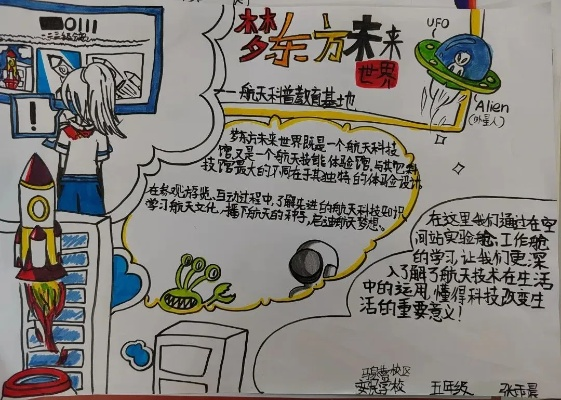 0111
!
梦东方未来
世界
UFO
Alien
(外星人)
——航天科普教育基地
梦东方未来世界既是一个航天科技
馆,又是一个航天技能体验馆,与其它科
技馆最大的不同在于其独特的体验设计。
在参观游览、互动过程中,了解先进的航天科技知识
学习航天文化,播下航天的种子,启迪航天梦想。
在这里我们通过在空
间站实验舱、工作舱
的学习,让我们更深
入了解了航天技术在生活
中的运用,懂得科技改变生
活的重要意义!
校区
学校
五年级